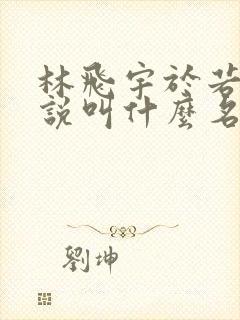 林飛宇於若
說叫什麼名
劉坤